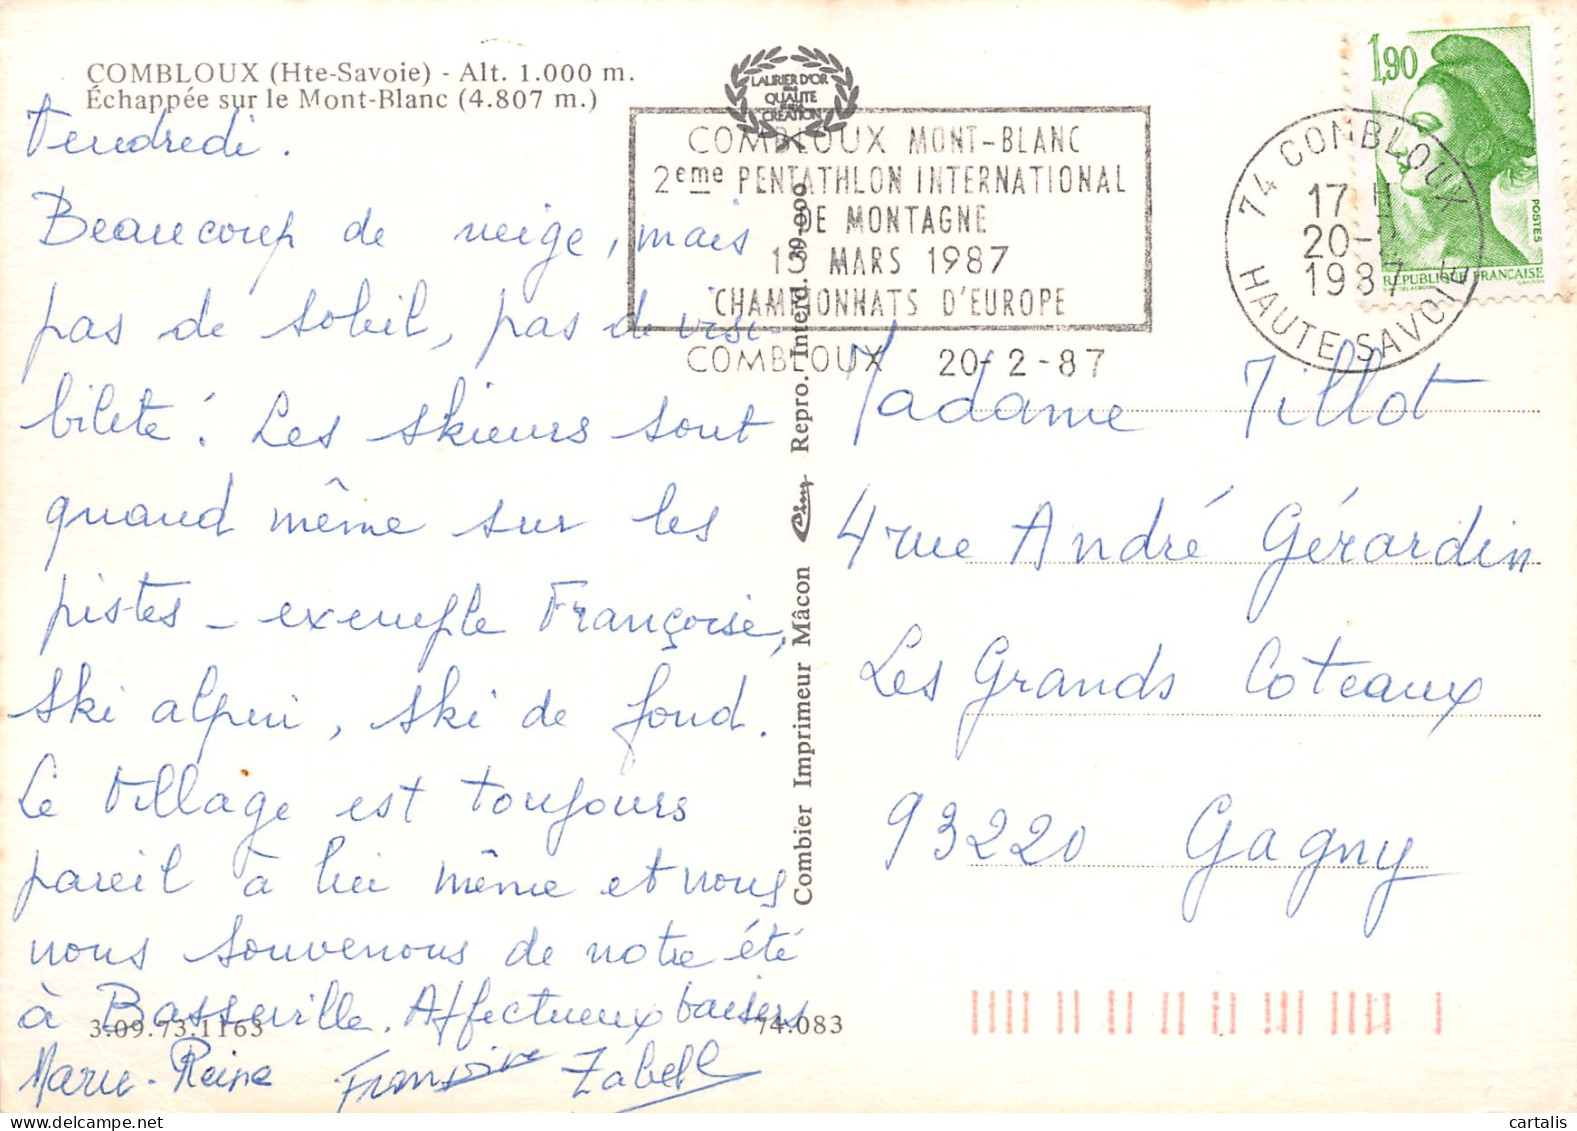 COMBLOUX (Hte-Savoie) - Alt. 1.000 m.
Échappée sur le Mont-Blanc (4.807 m.)
LAURIER D'OR
QUALITE
CREATION
COMBLOUX MONT-BLANC
2eme PENTATHLON INTERNATIONAL
DE MONTAGNE
15 MARS 1987
CHAMPIONNATS D'EUROPE
COMBLOUX 20-2-87
74 COMBLOUX
17 H
20-2
1987
HAUTE SAVOIE
1,90
POSTES
RÉPUBLIQUE FRANÇAISE
Vendredi.
Beaucoup de neige, mais
pas de soleil, pas de visi-
bilité! Les skieurs sont
quand même sur les
pistes - exemple Françoise,
ski alpin, ski de fond.
Le village est toujours
pareil à lui même et nous
nous souvenons de notre été
à Basseville. Affectueux baisers
Marie-Reine Françoise Zabell
3.09.73.1163
74.083
Combier Imprimeur Mâcon Cim Repro. Interd. 39.000
Madame Tillot
4 rue André Gérardin
Les Grands Coteaux
93220 Gagny
cartalis